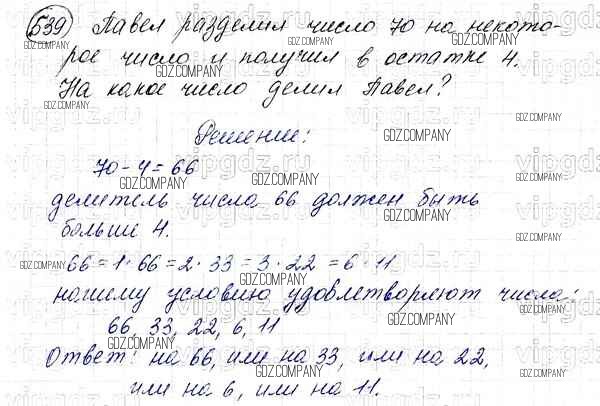 539) Павел разделил число 70 на некото-
рое число и получил в остатке 4.
На какое число делил Павел?
Решение:
70-4=66
делитель числа 66 должен быть
больше 4.
66=1·66=2·33=3·22=6·11
нашему условию удовлетворяют числа:
66, 33, 22, 6, 11
Ответ: на 66, или на 33, или на 22,
или на 6, или на 11.
GDZ.COMPANY
vipgdz.ru